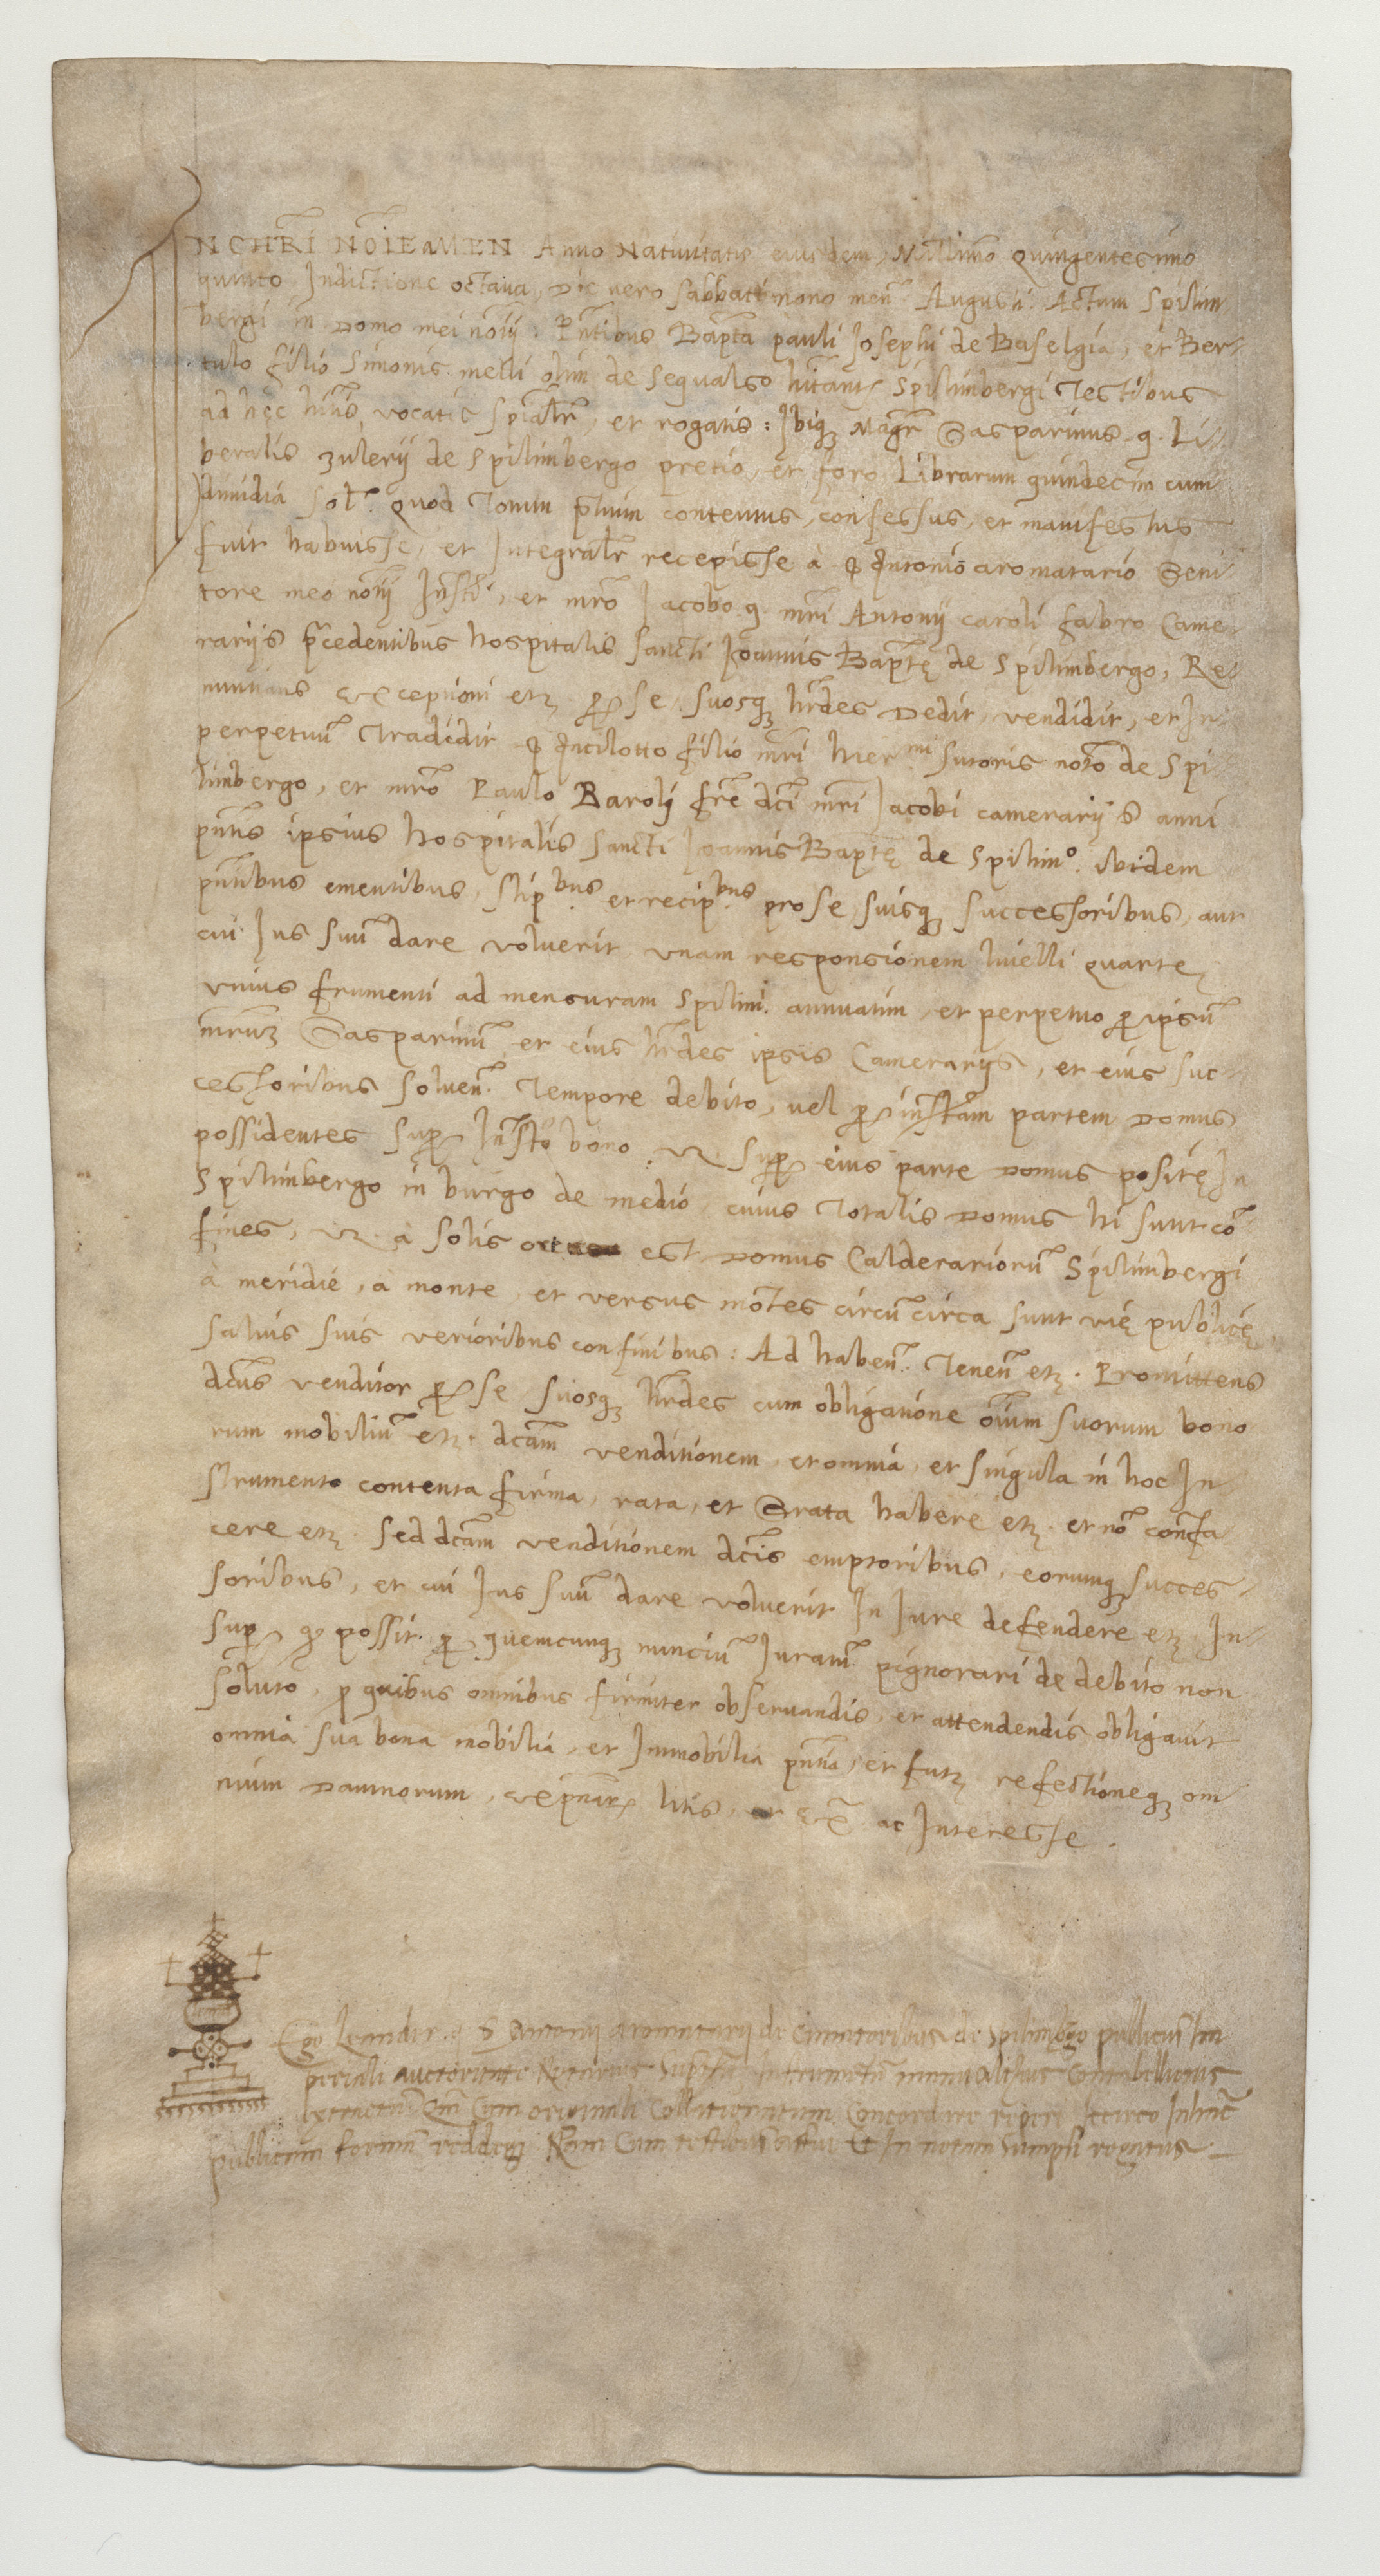 IN CHRI NOIE AMEN. Anno Nativitatis eiusdem, Millimo quingentesimo
quinto Indictione octava, Die vero sabbatti nono men. Augusti. Actum Spilim
bergi in Domo mei notij. Pntibus Bapta pauli Josephi de Baselgia, et Ber-
tulo filio Simonis melli olim de sequalso hitante Spilimbergi Testibus
ad hęc hitis, vocatis spialr, et rogatis: Ibiq; Magr Gasparinus q. Li-
beralis zulerij de Spilimbergo pretio, et foro Librarum quindecim cum
dimidia sol. quod Totum ptium contentus, confessus, et manifestus
fuit habuisse, et Integralr recepisse à Antonio aromatario Geni-
tore meo notij Insti, et mro Jacobo q. mri Antonij caroli fabro Came-
rarijs pcedentibus hospitalis sancti Joannis Baptę de Spilimbergo, Re-
nuntians exceptioni etz. p se, suosq; hrdes Dedit, vendidit, et In
perpetuu Tradidit Ancilotto filio mri hiermi sutoris noto de Spi-
limbergo, et mro Paulo Barolj fre dci mri Jacobi camerarijs anni
pntis ipsius hospitalis sancti Joannis Baptę de Spilimo. ibidem
pntibus ementibus, stipbus et recipbus pro se, suisq; successoribus, aut
cui Jus suu dare voluerit, unam responsionem livelli quarte
unius frumenti ad mensuram Spilimi. annuatim, et perpetuo p ipsu
mrum Gasparinu et eius hrdes ipsis Camerarijs, et eius suc-
cessoribus solven. Tempore debito, vel p instam partem Domus
possidentes sup Insto bono. Vz. sup eius parte Domus positę In
Spilimbergo in burgo de medio, cuius Totalis Domus hi sunt co-
fines, Vz. à solis ortu est Domus Calderarioru Spilimbergi
à meridie, à monte, et versus motes circu circa sunt vię publicę,
salvis suis verioribus confinibus: Ad haben. Tenen. etz. Promittens
dcus venditor p se, suosq; hrdes cum obligatione oium suorum bono
rum mobiliu etz. dcam venditionem, et omnia, et singula in hoc In-
strumento contenta firma, rata, et Grata habere etz. et no contfa
cere etz. Sed dcam venditionem dcis emptoribus, eorumq; succes-
soribus, et cui Jus suu dare voluerit In Jure defendere etz. In-
sup qo possit. p quemcunq; nunciu Juratu pignorari de debito non
soluto, p quibus omnibus firmiter observandis, et attendendis obligavit
omnia sua bona mobilia, et Immobilia pntia, et futz refectioneq; om
nium Damnorum, expnar litis, et ex ac Interesse.
Ego Leander q. S Antonij aromatarij de Cinnitoribus de Spilimbgo publicus Im
periali auctoritate Notarius Suprasm Intrumetu manu alterius Contabellionis
Extractu Qm Cum originali Collationatum Concordare reperi Iccirco In hanc
publicam formam reddegi Nam Cum testibus affui Et In notam Sumpsi rogatus.